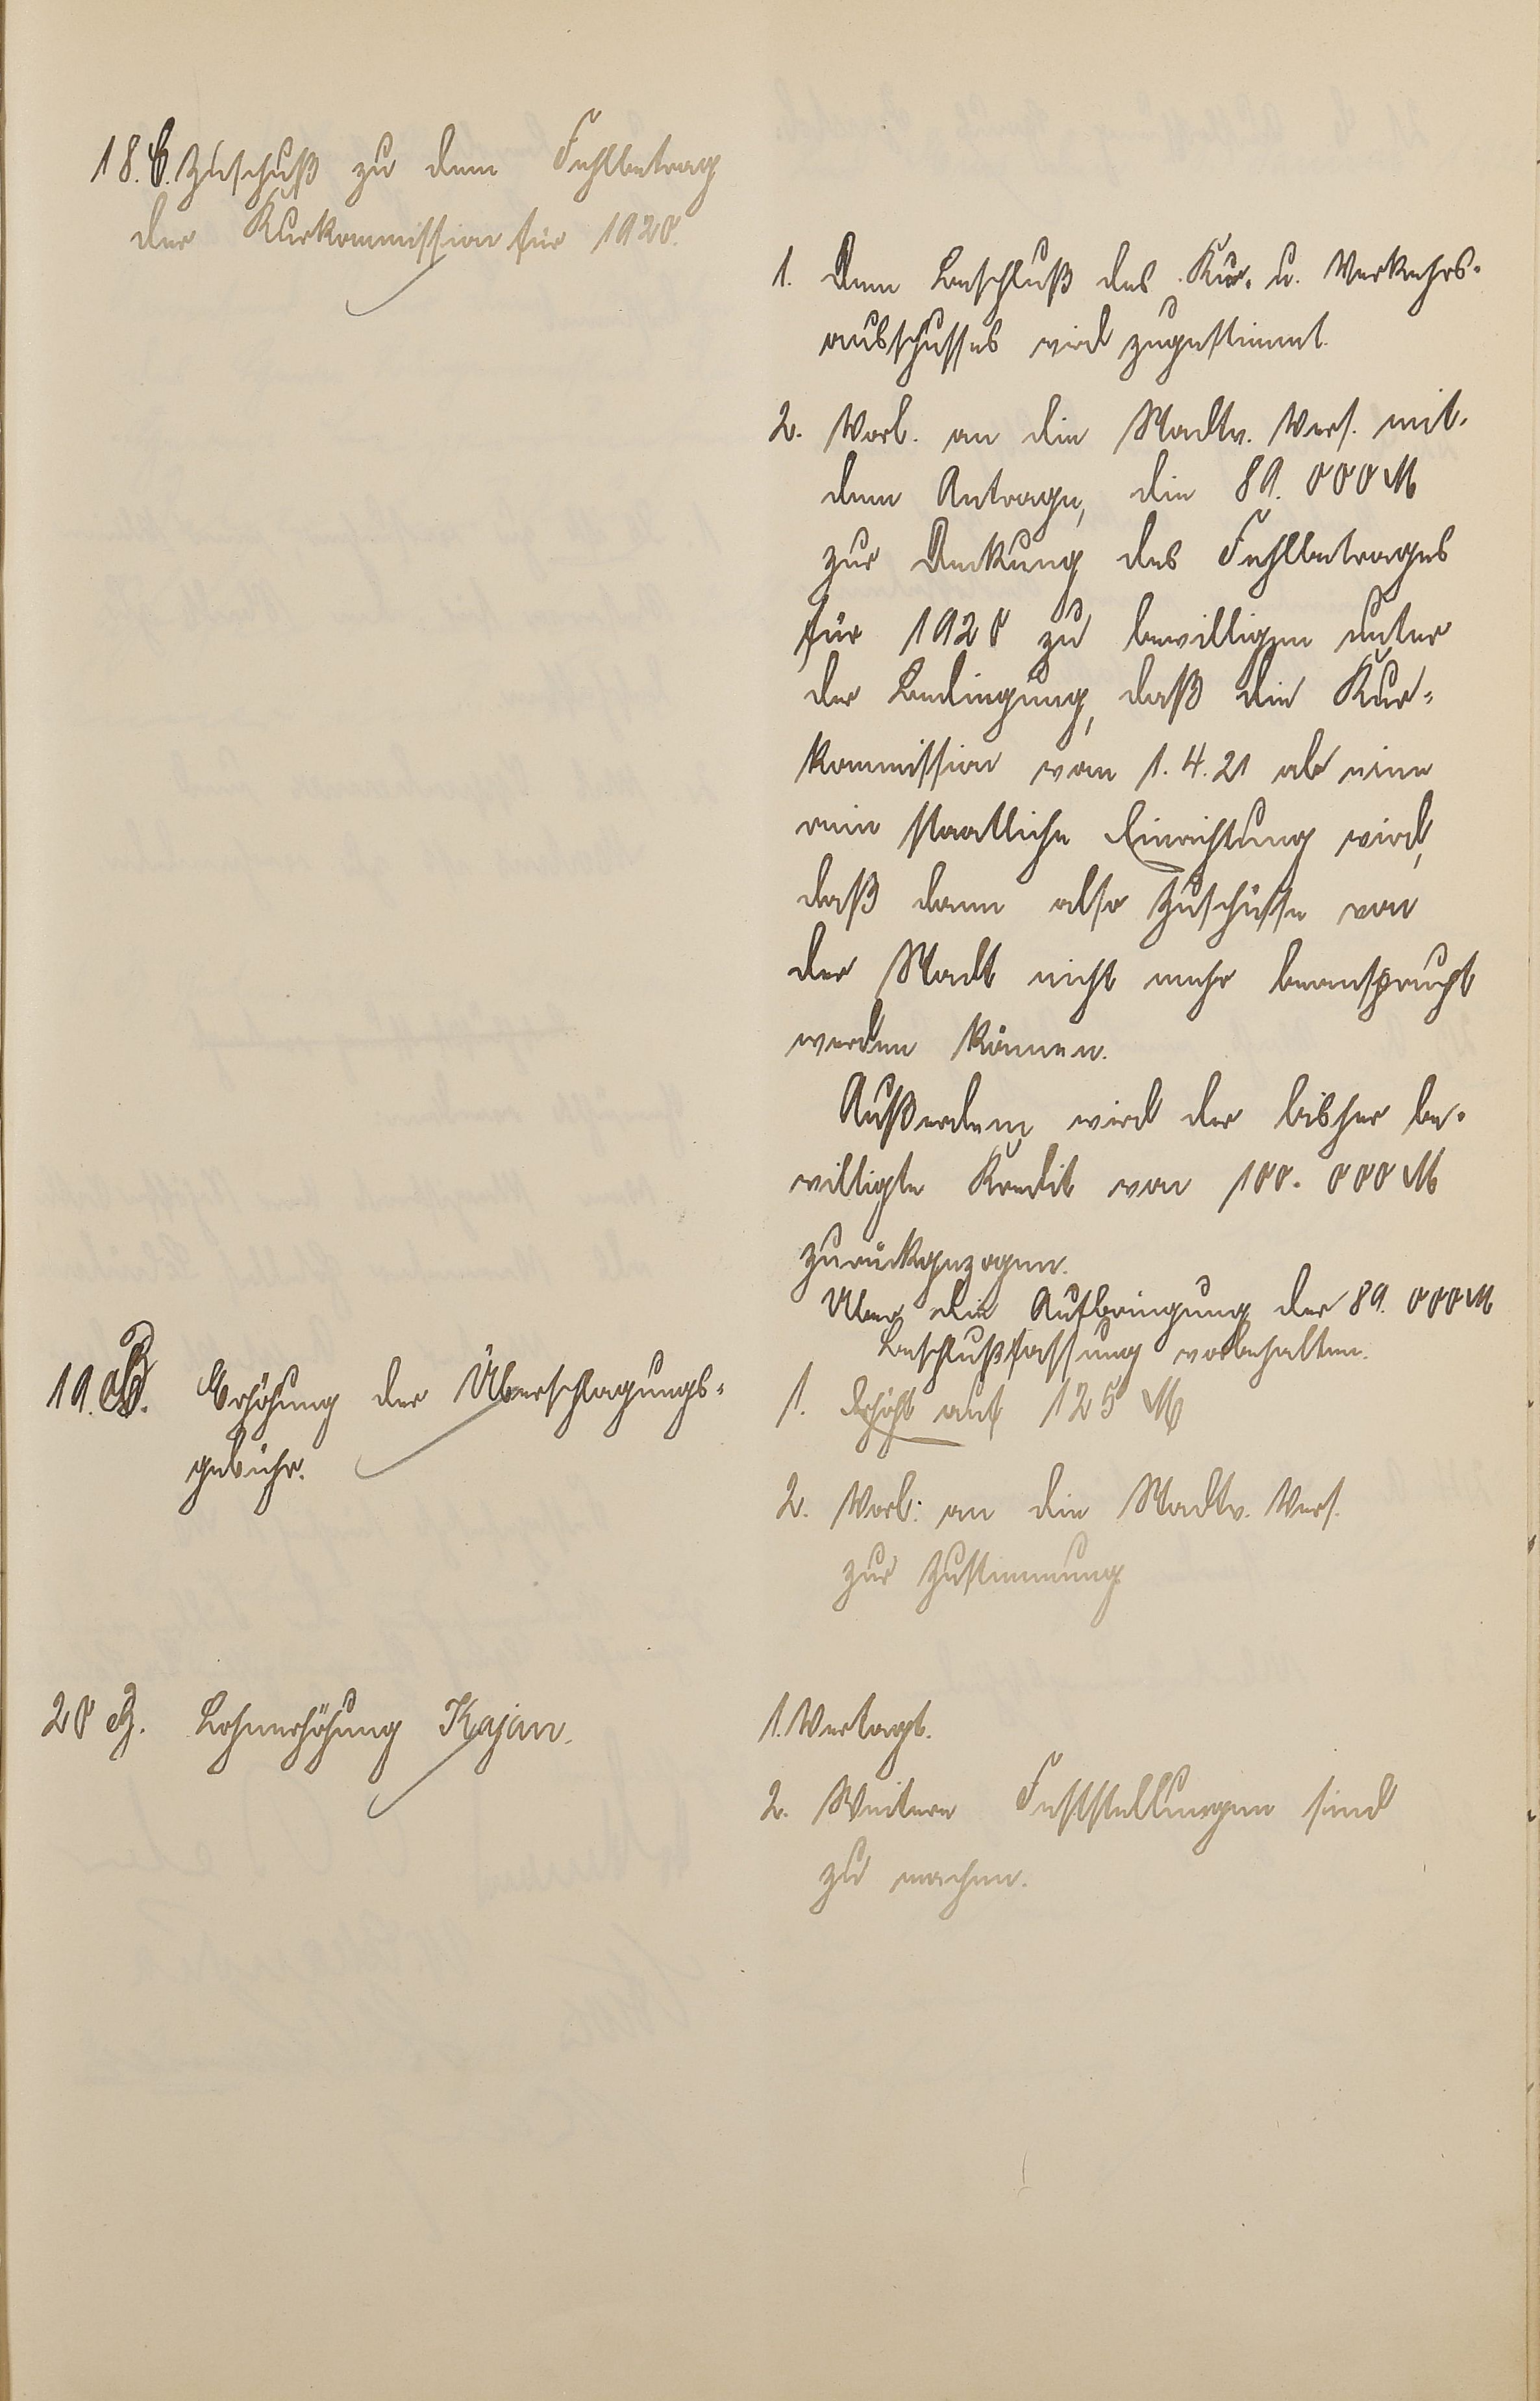 18. C. Zuschuß zu dem Fehlbetrag
der Kurkommission für 1920.
1. Dem Beschluß des Kur- u. Verkehrs-
ausschusses wird zugestimmt.
2. Vorl. an die Stadtv. Vers. mit
dem Antrage, die 89.000 M
zur Deckung des Fehlbetrages
für 1920 zu bewilligen unter
der Bedingung, daß die Kur-
kommission vom 1.4.21 ab eine
rein staatliche Einrichtung wird,
daß dann also Zuschüsse von
der Stadt nicht mehr beansprucht
werden können.
Außerdem wird der bisher be-
willigte Kredit von 100.000 M
zurückgezogen.
Über die Aufbringung der 89.000 M
Beschlußfassung vorbehalten.
19. B. Erhöhung der Überschlagungs-
gebühr.
1. Erhöht auf 125 M
2. Vorl. an die Stadtv. Vers.
zur Zustimmung
20 B. Lohnerhöhung Kajan.
1. Vertagt.
2. Weitere Feststellungen sind
zu machen.